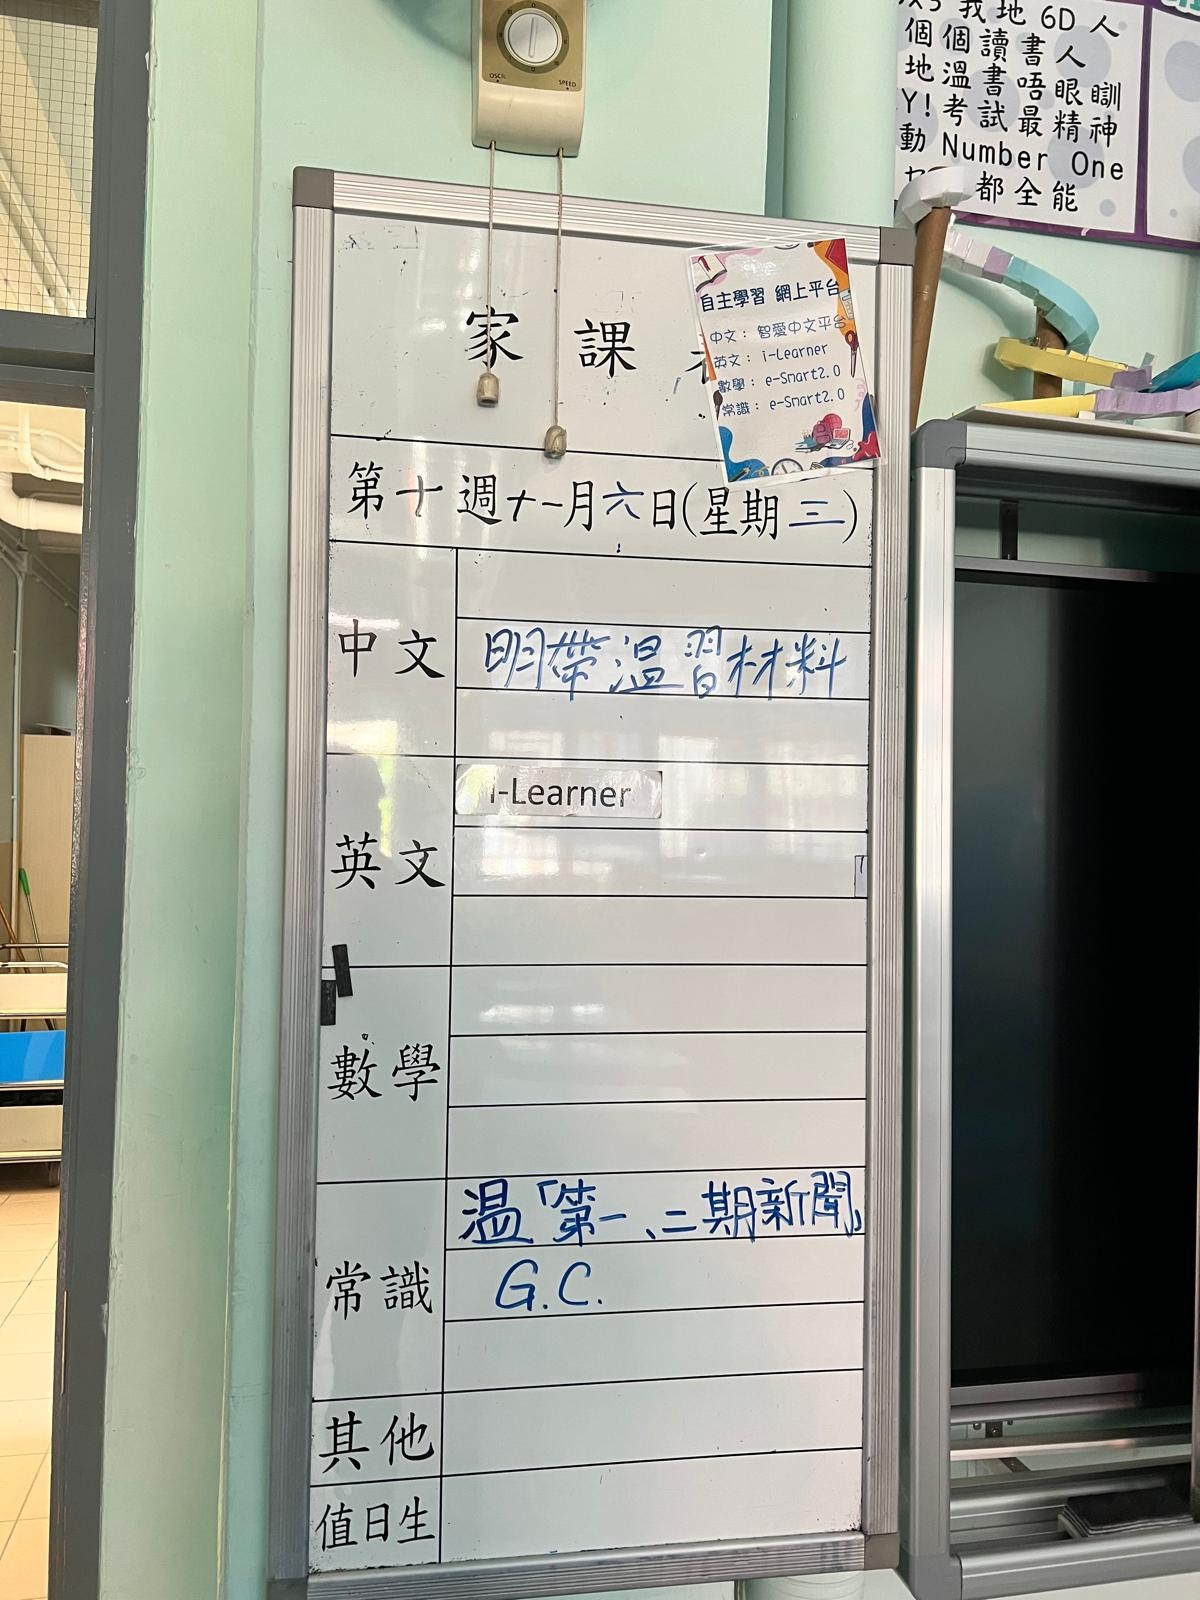 我地 6D 人
個個讀書人
地溫書唔眼瞓
Y! 考試最精神
動 Number One
都全能
OSCIL
SPEED
家課
自主學習 網上平台
中文： 智愛中文平台
英文： i-Learner
數學： e-Smart2.0
常識： e-Smart2.0
第十週十一月六日(星期三)
中文
明帶溫習材料
英文
i-Learner
數學
常識
溫「第一、二期新聞」
G.C.
其他
值日生